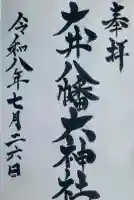 奉拝
大井八幡大神社
令和八年七月二六日